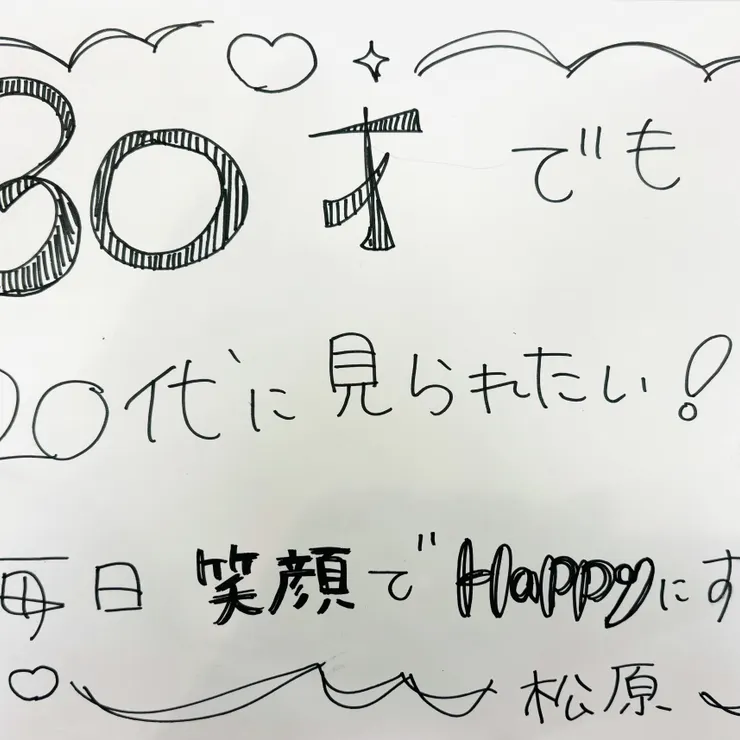 30才でも
20代に見られたい!
毎日笑顔でHappyにす
松原